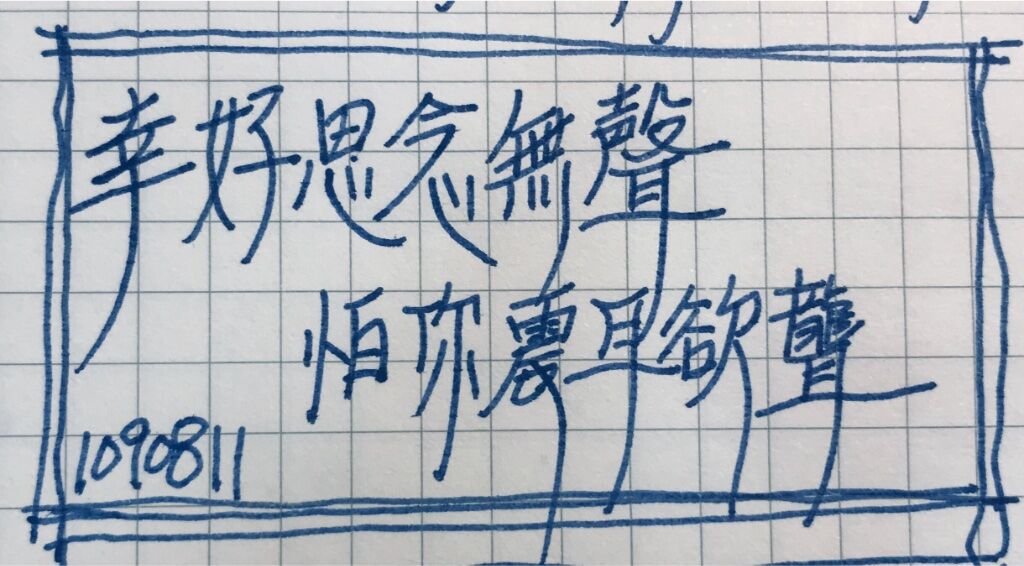 幸好思念無聲
怕你震耳欲聾
1090811